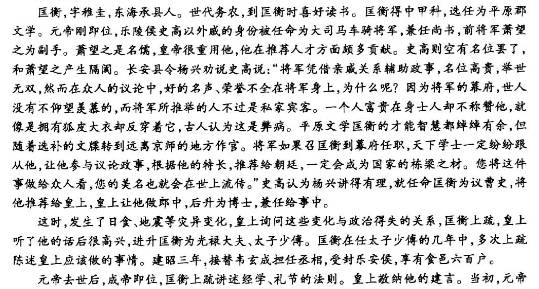 匡衡,字雅圭,东海承县人。世代务农,到匡衡时喜好读书。匡衡得中甲科,选任为平原郡
文学。元帝刚即位,乐陵侯史高以外戚的身份被任命为大司马车骑将军,兼任尚书,前将军萧望
之为副手。萧望之是名儒,皇帝很重用他,他在推荐人才方面颇多贡献。史高则空有名位罢了,
和萧望之产生隔阂。长安县令杨兴劝说史高说:“将军凭借亲戚关系辅助政事,名位高贵,举世
无双,然而在众人的议论中,好的名声、荣誉不全在将军身上,为什么呢?因为将军的幕府,世人
没有不仰望羡慕的,而将军所推举的人不过是私家宾客。一个人富贵在身士人却不称赞他,就
像是拥有狐皮大衣却反穿着它,古人认为这是弊病。平原文学匡衡的才能智慧都绰绰有余,但
随着选补的文牒转到远离京师的地方作官。将军如果召匡衡到幕府任职,天下学士一定纷纷跟
从他,让他参与议论政事,根据他的特长,推荐给朝廷,一定会成为国家的栋梁之材。您将这件
事做给众人看,您的美名也就会在世上流传。”史高认为杨兴讲得有理,就任命匡衡为议曹史,将
他推荐给皇上,皇上让他做郎中,后升为博士,兼任给事中。
这时,发生了日食、地震等灾异变化,皇上询问这些变化与政治得失的关系,匡衡上疏,皇上
听了他的话后很高兴,进升匡衡为光禄大夫、太子少傅。匡衡在任太子少傅的几年中,多次上疏
陈述皇上应该做的事情。建昭三年,接替韦玄成担任丞相,受封乐安侯,享有食邑六百户。
元帝去世后,成帝即位,匡衡上疏讲述经学、礼节的法则。皇上敬纳他的建言。当初,元帝